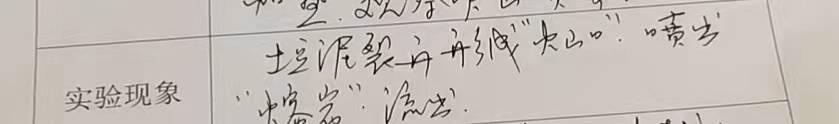 实验现象
土豆泥裂开形成"火山口". 喷出
"熔岩". 流出.